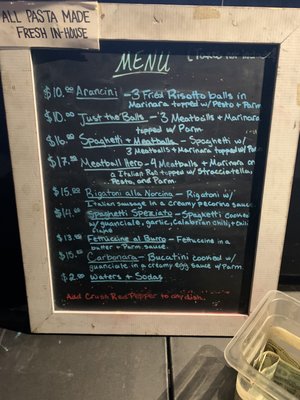 ALL PASTA MADE
FRESH IN-HOUSE
MENU
$10.00 Arancini - 3 Fried Risotto balls in
Marinara topped w/ Pesto + Parm
$10.00 Just the Balls - 3 Meatballs + Marinara
topped w/ Parm
$16.00 Spaghetti + Meatballs - Spaghetti w/
3 Meatballs + Marinara topped w/ Parm
$17.00 Meatball Hero - 4 Meatballs + Marinara on
a Italian topped w/ Stracciatella,
Pesto, and Parm.
$15.00 Rigatoni alla Norcina - Rigatoni w/
Italian Sausage in a creamy pecorino sauce
$14.00 Spaghetti Speziato - Spaghetti cooked
w/ guanciale, garlic, Calabrian chili, +
$13.00 Fettuccine al Burro - Fettuccine in a
butter + Parm sauce.
$15.00 Carbonara - Bucatini cooked w/
guanciale in a creamy egg sauce w/ Parm
$2.00 Waters + Sodas
Add Crush Red Pepper to any dish.